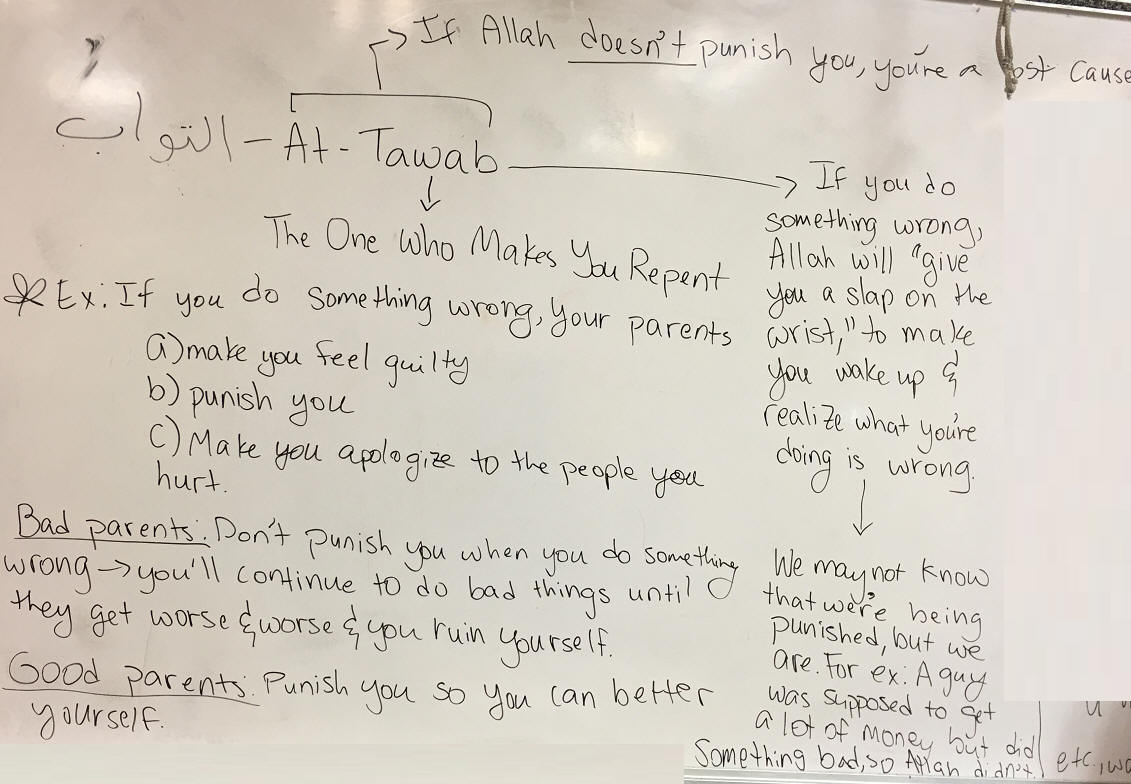 If Allah doesn't punish you, you're a lost cause
التواب - At-Tawab
The One Who Makes You Repent
Ex: If you do something wrong, your parents
a) make you feel guilty
b) punish you
c) Make you apologize to the people you
hurt.
Bad parents: Don't punish you when you do something
wrong → you'll continue to do bad things until
they get worse & worse & you ruin yourself.
Good parents: Punish you so you can better
yourself.
If you do
something wrong,
Allah will "give
you a slap on the
wrist," to make
you wake up &
realize what you're
doing is wrong.
We may not know
that we're being
punished, but we
are. For ex: A guy
was supposed to get
a lot of money but did
something bad, so Allah didn't
etc.,